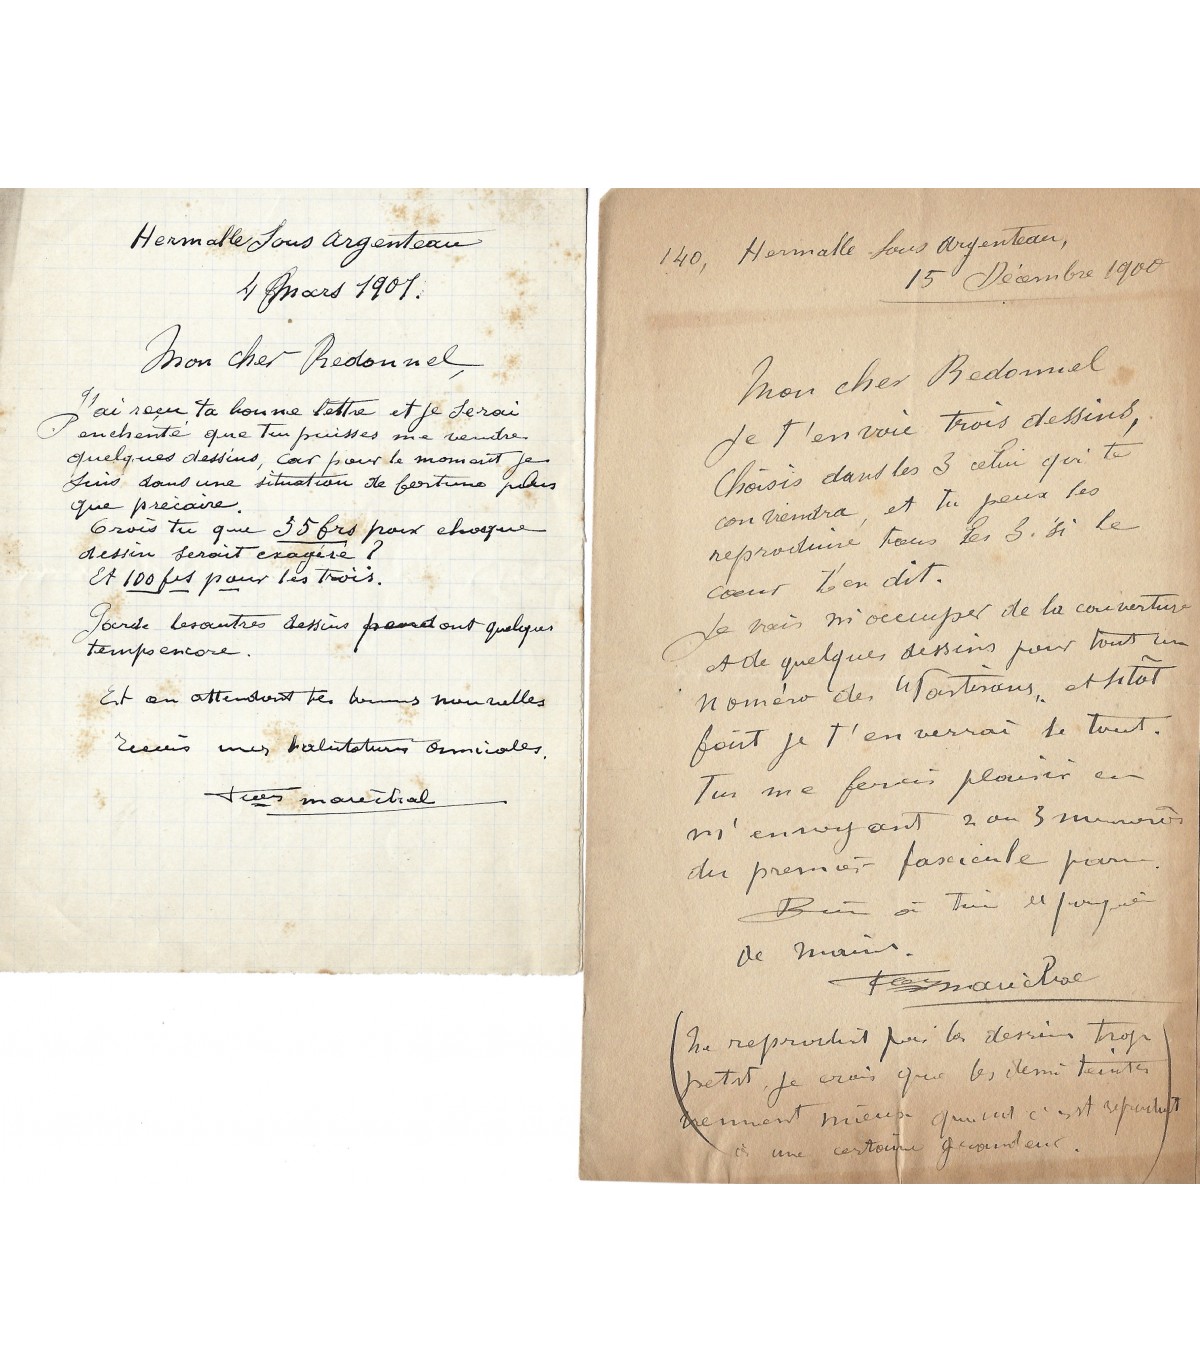 Hermalle Sous Argenteau
4 Mars 1901.
Mon cher Redonnel,
J'ai reçu ta bonne lettre et je serai
enchenté que tu puisses me vendre
quelques dessins, car pour le moment je
suis dans une situation de fortune plus
que précaire.
Crois tu que 35 frs pour chaque
dessin serait exagéré ?
Et 100 frs pour les trois.
Garde les autres dessins pendont quelques
temps encore.
Et en attendant tes bonnes nouvelles
reçois mes salutations amicales.
marèchal
140, Hermalle Sous Argenteau,
15 Décembre 1900
Mon cher Redonnel
Je t'envoie trois dessins,
Choisis dans les 3 celui qui te
conviendra, et tu peux les
reproduire tous les 3. si le
cœur t'en dit.
Je vais m'occuper de la couverture
et de quelques dessins pour tout un
numéro des "Partisans", et sitôt
fait je t'enverrai le tout.
Tu me ferais plaisir en
m'envoyant 2 ou 3 numéros
du premier fascicule paru.
Bien à toi et poignée
de mains.
marèchal
(Ne reproduit pas les dessins trop
petit, je crois que les demi teintes
viennent mieux quand c'est reproduit
à une certaine grandeur.)